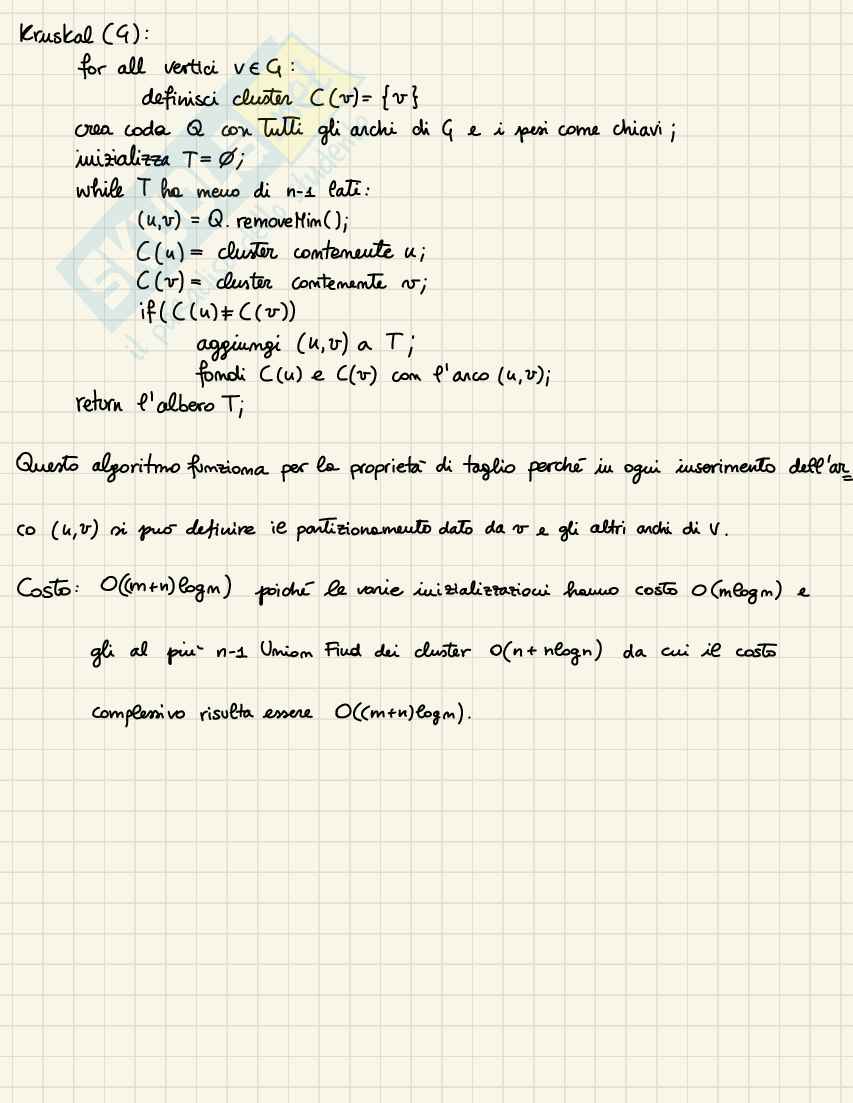 Kruskal (G):
for all vertici v ∈ G:
definisci cluster C(v) = {v}
crea coda Q con tutti gli archi di G e i pesi come chiavi;
inizializza T = Ø;
while T ha meno di n-1 lati:
(u,v) = Q. removeMin();
C(u) = cluster contenente u;
C(v) = cluster contenente v;
if (C(u) ≠ C(v))
aggiungi (u,v) a T;
fondi C(u) e C(v) con l'arco (u,v);
return l'albero T;
Questo algoritmo funziona per la proprietà di taglio perché in ogni inserimento dell'ar=
co (u,v) si può definire il partizionamento dato da v e gli altri archi di V.
Costo: O((m+n)logn) poiché le varie inizializzazioni hanno costo O(mlogm) e
gli al più n-1 Union Find dei cluster O(n+nlogn) da cui il costo
complessivo risulta essere O((m+n)logn).
SKUOLA.net
il paradiso dello studente